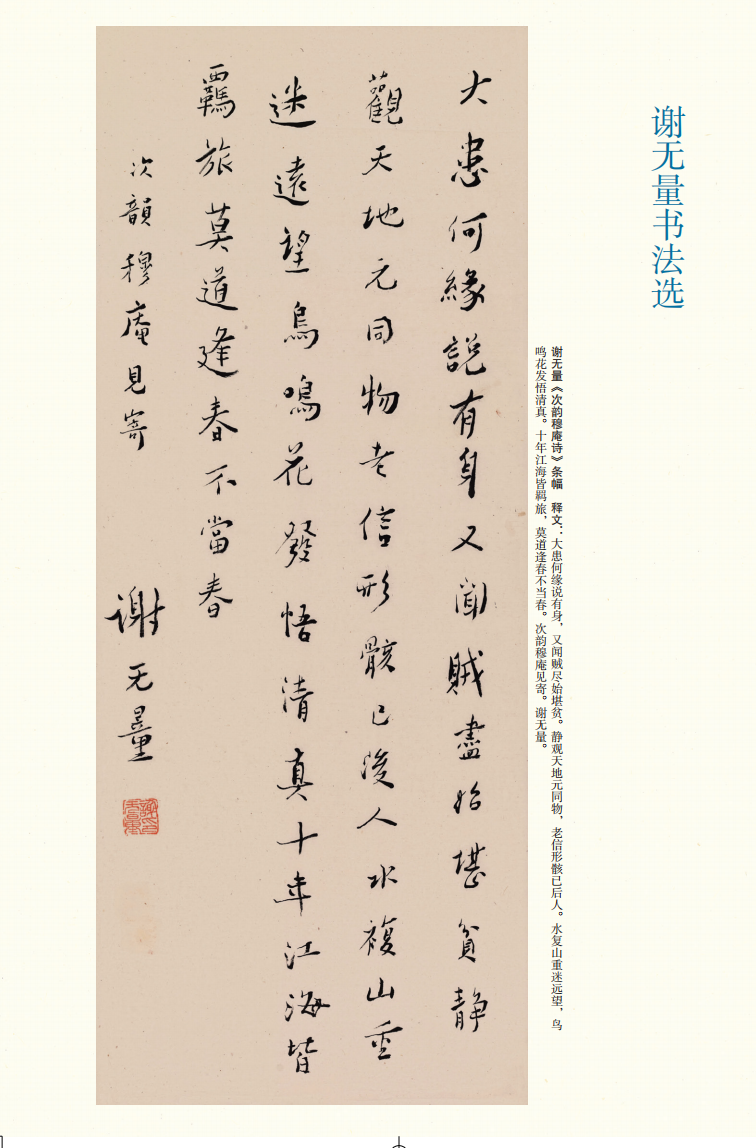 谢无量书法选
谢无量《次韵穆庵诗》条幅　释文：大患何缘说有身，又闻贼尽始堪贫。静观天地元同物，老信形骸已后人。水复山重迷远望，鸟
鸣花发悟清真。十年江海皆羁旅，莫道逢春不当春。次韵穆庵见寄。谢无量。
大患何緣説有身又聞賊盡始堪貧静
觀天地元同物老信形骸已後人水複山重
迷遠望鳥鳴花發悟清真十年江海皆
羈旅莫道逢春不當春
次韻穆庵見寄
谢无量